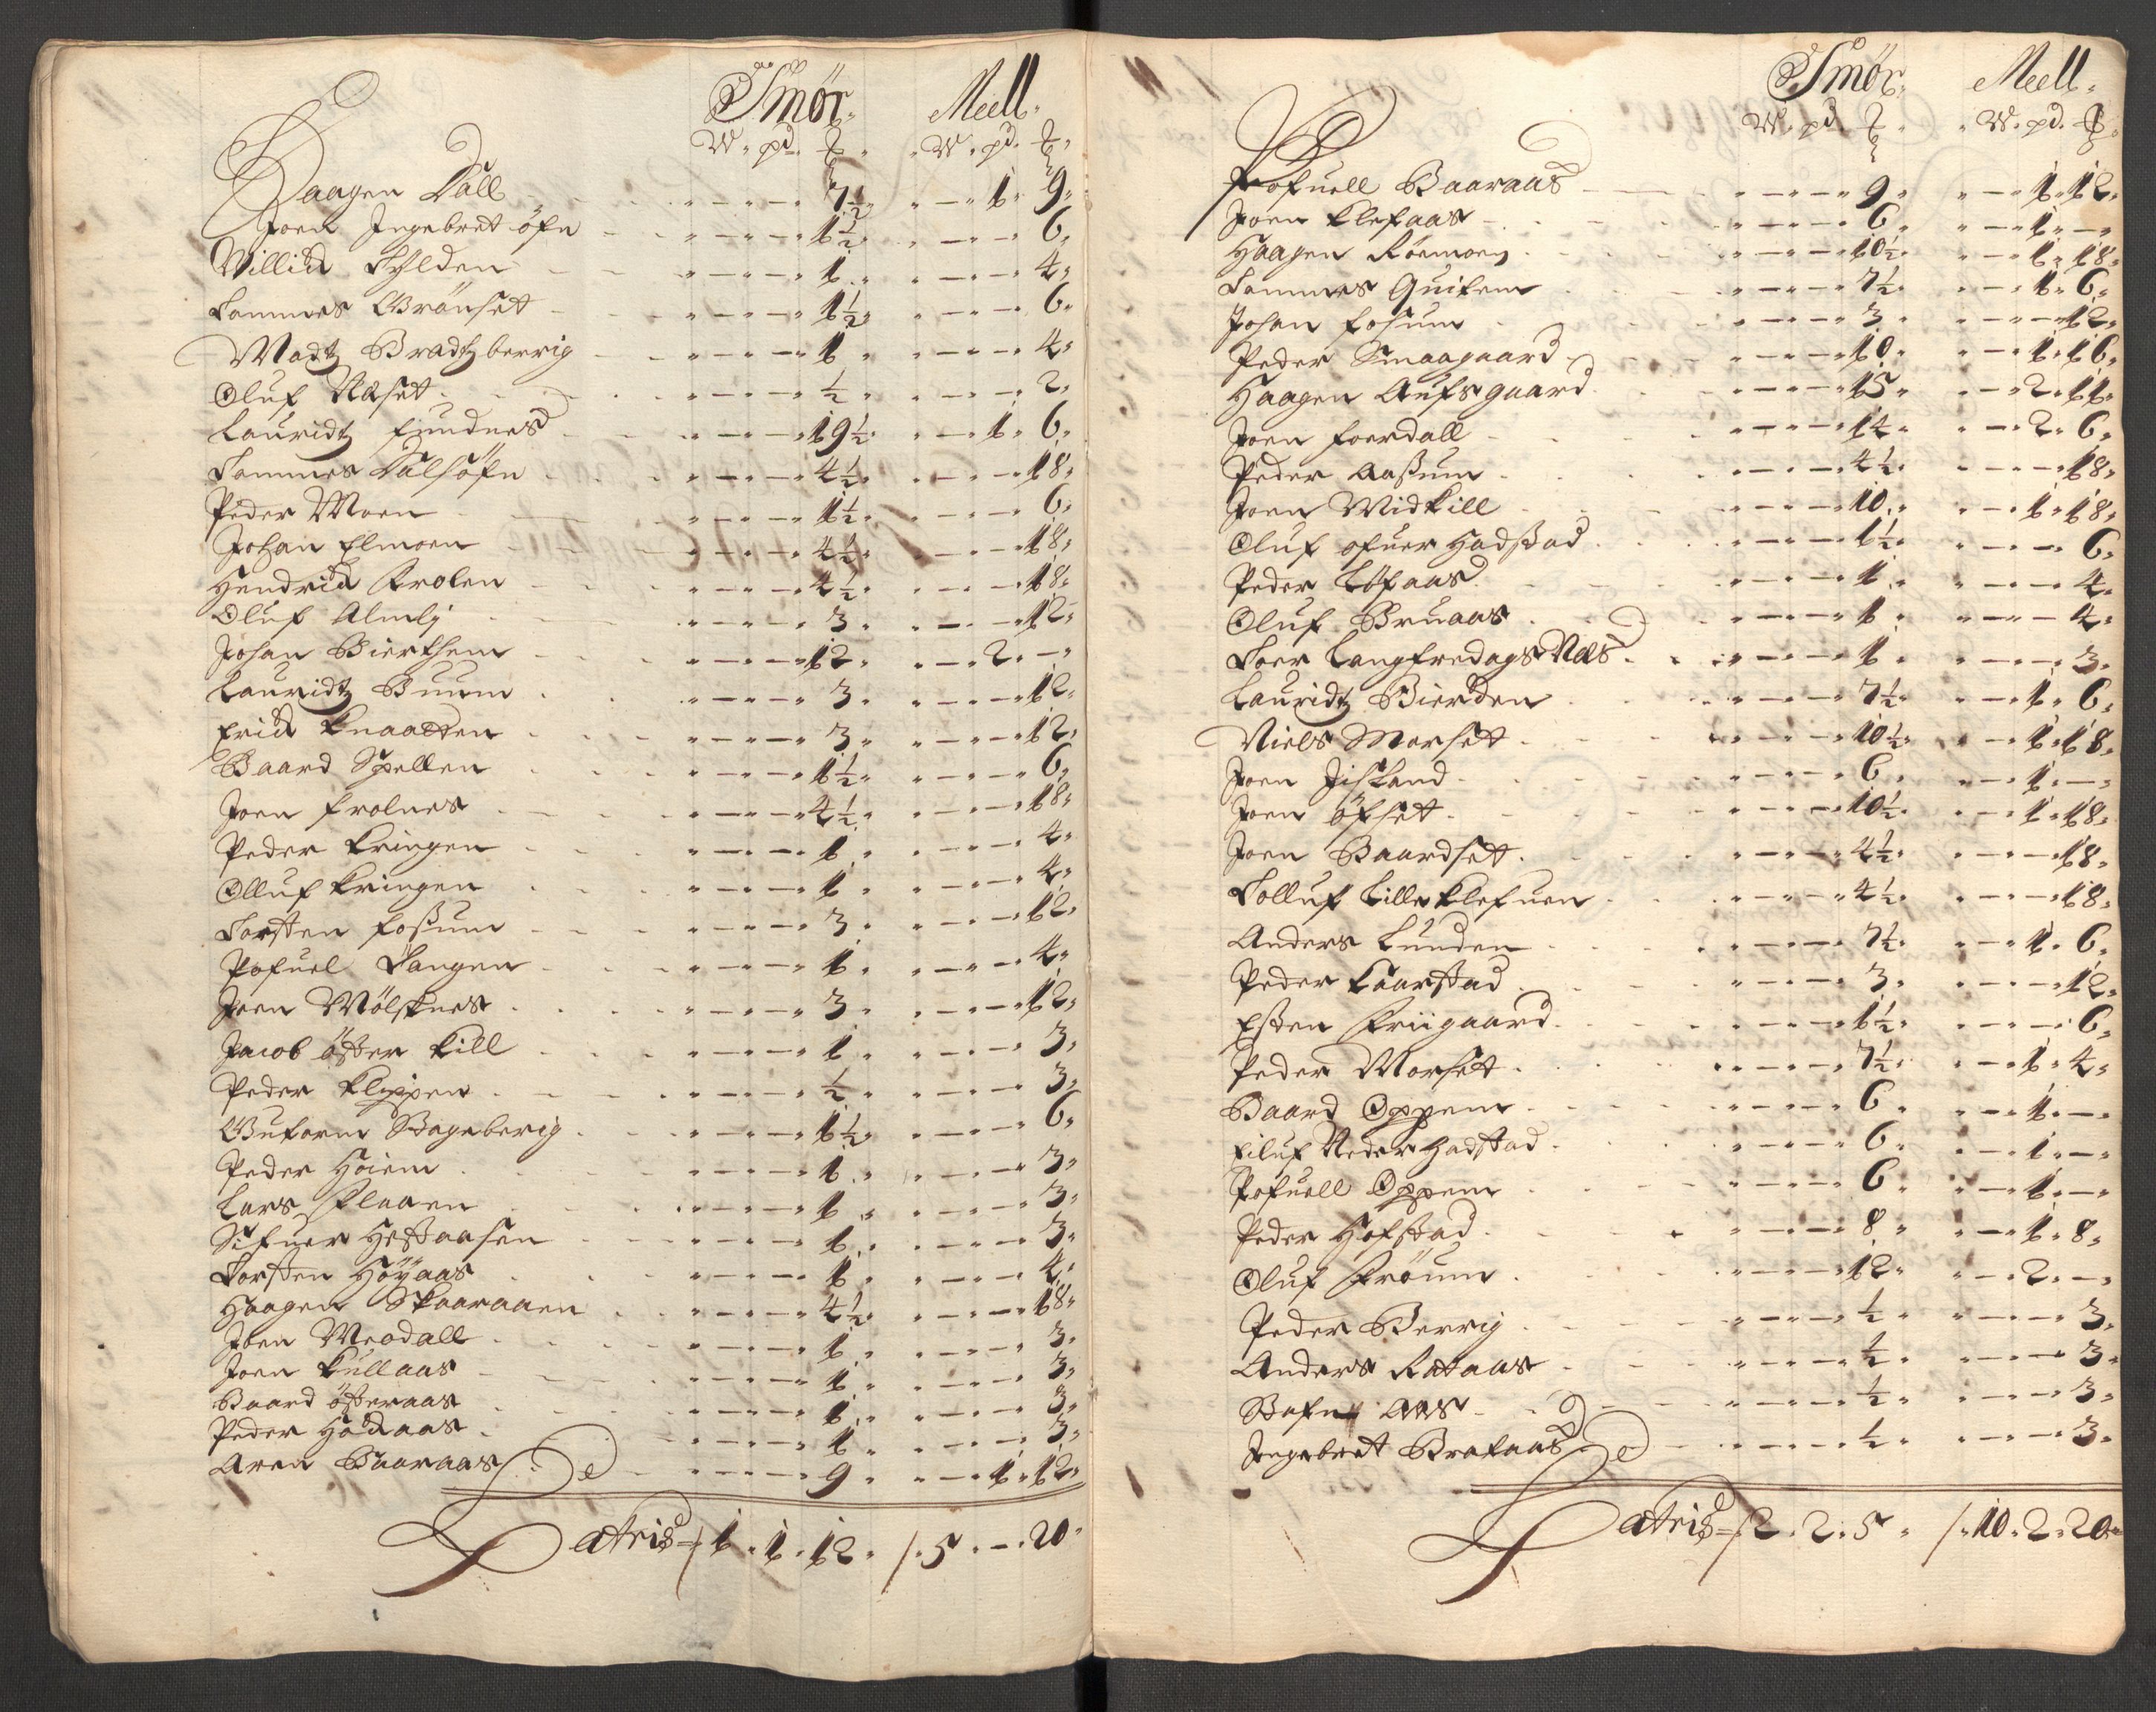 Smör. Meell.
W. pd. ℔. W. pd. ℔.
Haagen Dall - - - 7½. - 1. 9.
Joen Ingebret öfn - - - 1½. - - 6.
Villich Tylden - - - 1. - - 4.
Tommes Grönset - - - 1½. - - 6.
Madtz Bradtzberrig - - - 1. - - 4.
Oluf Næset - - - ½. - - 2.
Lauridtz Fundnes - - - 19½. - 1. 6.
Tommes Dalsöfn - - - 4½. - - 18.
Peder Moen - - - 1½. - - 6.
Johan Elmoen - - - 4½. - - 18.
Hendrich Krolen - - - 4½. - - 18.
Oluf Almlj - - - 3. - - 12.
Johan Bierkhem - - - 12. - 2. -
Lauridtz Buum - - - 3. - - 12.
Erich Knaatten - - - 3. - - 12.
Baard Spellen - - - 1½. - - 6.
Joen Frolnes - - - 4½. - - 18.
Peder Kringen - - - 1. - - 4.
Olluf Kringen - - - 1. - - 4.
Torsten Fossum - - - 3. - - 12.
Pofuel Tangen - - - 1. - - 4.
Joen Mölsknes - - - 3. - - 12.
Jacob öster Kill - - - 1. - - 3.
Peder Klyppen - - - ½. - - 3.
Guform Bageberig - - - 1½. - - 6.
Peder Höiem - - - 1. - - 3.
Lars Flaaen - - - 1. - - 3.
Sifuer Hestaasen - - - 1. - - 3.
Torsten Höyaas - - - 1. - - 4.
Haagen Skaaraaen - - - 4½. - - 18.
Joen Meodall - - - 1. - - 3.
Joen Kullaas - - - 1. - - 3.
Baard österaas - - - 1. - - 3.
Peder Hochaas - - - 1. - - 3.
Aren Baaraas - - - 9. - 1. 12.
Latris /. 1. 1. 12. /. 5. -. 20.
Smör. Meell.
W. pd. ℔. W. pd. ℔.
Pofuell Baaraas - - - 9. - 1. 12.
Joen Klefaas - - - 6. - 1. -
Haagen Röemoen - - - 10½. - 1. 18.
Tommes Quifem - - - 7½. - 1. 6.
Johan Fosum - - - 3. - - 12.
Peder Smaagaard - - - 10. - 1. 16.
Haagen Aufsgaard - - - 15. - 2. 11.
Joen Foerdall - - - 14. - 2. 6.
Peder Aassum - - - 4½. - - 18.
Joen Midkill - - - 10. - 1. 18.
Oluf ofuer Hadstad - - - 1½. - - 6.
Peder Löfaas - - - 1. - - 4.
Oluf Bruaas - - - 1. - - 4.
Toer Langfredags Næs - - - 1. - - 3.
Lauridtz Bierden - - - 7½. - 1. 6.
Niels Morset - - - 10½. - 1. 18.
Joen Fiskand - - - 6. - 1. -
Joen öfset - - - 10½. - 1. 18.
Joen Baardset - - - 4½. - - 18.
Tolluf Lille Klefuen - - - 4½. - - 18.
Anders Lunden - - - 7½. - 1. 6.
Peder Kaarstad - - - 3. - - 12.
Esten Friigaard - - - 1½. - - 6.
Peder Morset - - - 7½. - 1. 4.
Baard Oppem - - - 6. - 1. -
Eiluf Nederhadstad - - - 6. - 1. -
Pofuell Oppem - - - 6. - 1. -
Peder Hofstad - - - 8. - 1. 8.
Oluf Fröum - - - 12. - 2. -
Peder Berrig - - - ½. - - 3.
Anders Rataas - - - ½. - - 3.
Aas - - - ½. - - 3.
Ingebret Brataas - - - ½. - - 3.
Latris /. 2. 2. 5. /. 10. 2. 20.